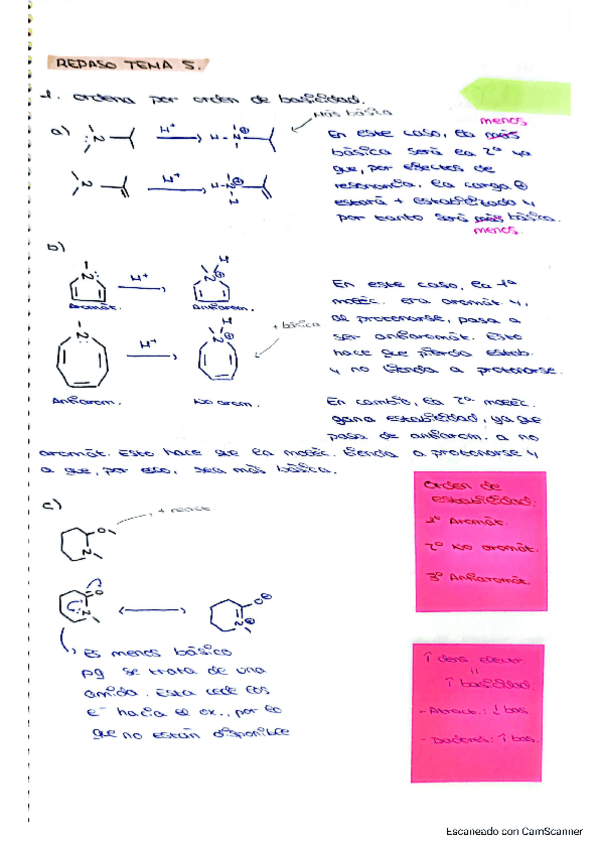 REPASO TEMA 5.
1. Ordena por orden de basicidad.
Más básica
a)
H⁺
menos
En este caso, la más
básica será la 2ª ya
que, por efectos de
resonancia, la carga ⊕
estará + estabilizada y
por tanto será más básica.
menos.
b)
H⁺
Aromát.
Antiarom.
En este caso, la 1ª
moléc. era aromát. y,
al protonarse, pasa a
ser antiaromát. Esto
hace que pierda estab.
y no tienda a protonarse.
+ básica
H⁺
Antiarom.
No arom.
En cambio, la 2ª moléc.
gana estabilidad, ya que
pasa de antiarom. a no
aromát. Esto hace que la moléc. tienda a protonarse y
a que, por eso, sea más básica.
c)
Es menos básico
pq se trata de una
amida. Esta cede los
e⁻ hacia el ox., por lo
que no están disponible
Orden de
estabilidad:
1º Aromát.
2º No aromát.
3º Antiaromát.
↑ dens elect.
=
↑ basicidad.
- Atract.: ↓ bas
- Dadores: ↑ bas.
Escaneado con CamScanner